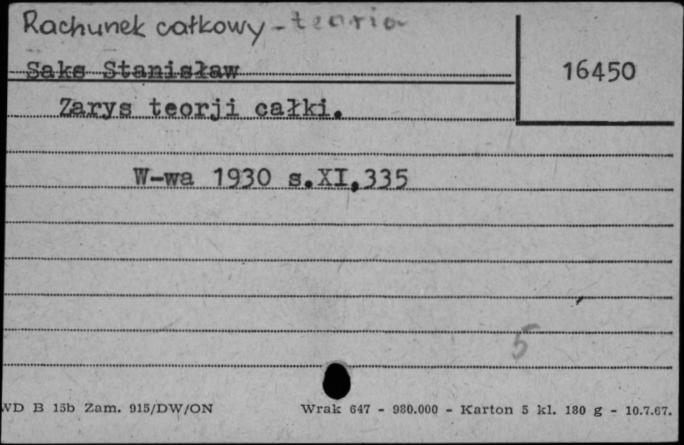 Rachunek całkowy - teoria
Saks Stanisław
16450
Zarys teorji całki.
W-wa 1930 s.XI,335
5
WD B 15b Zam. 915/DW/ON
Wrak 647 - 980.000 - Karton 5 kl. 180 g - 10.7.67.